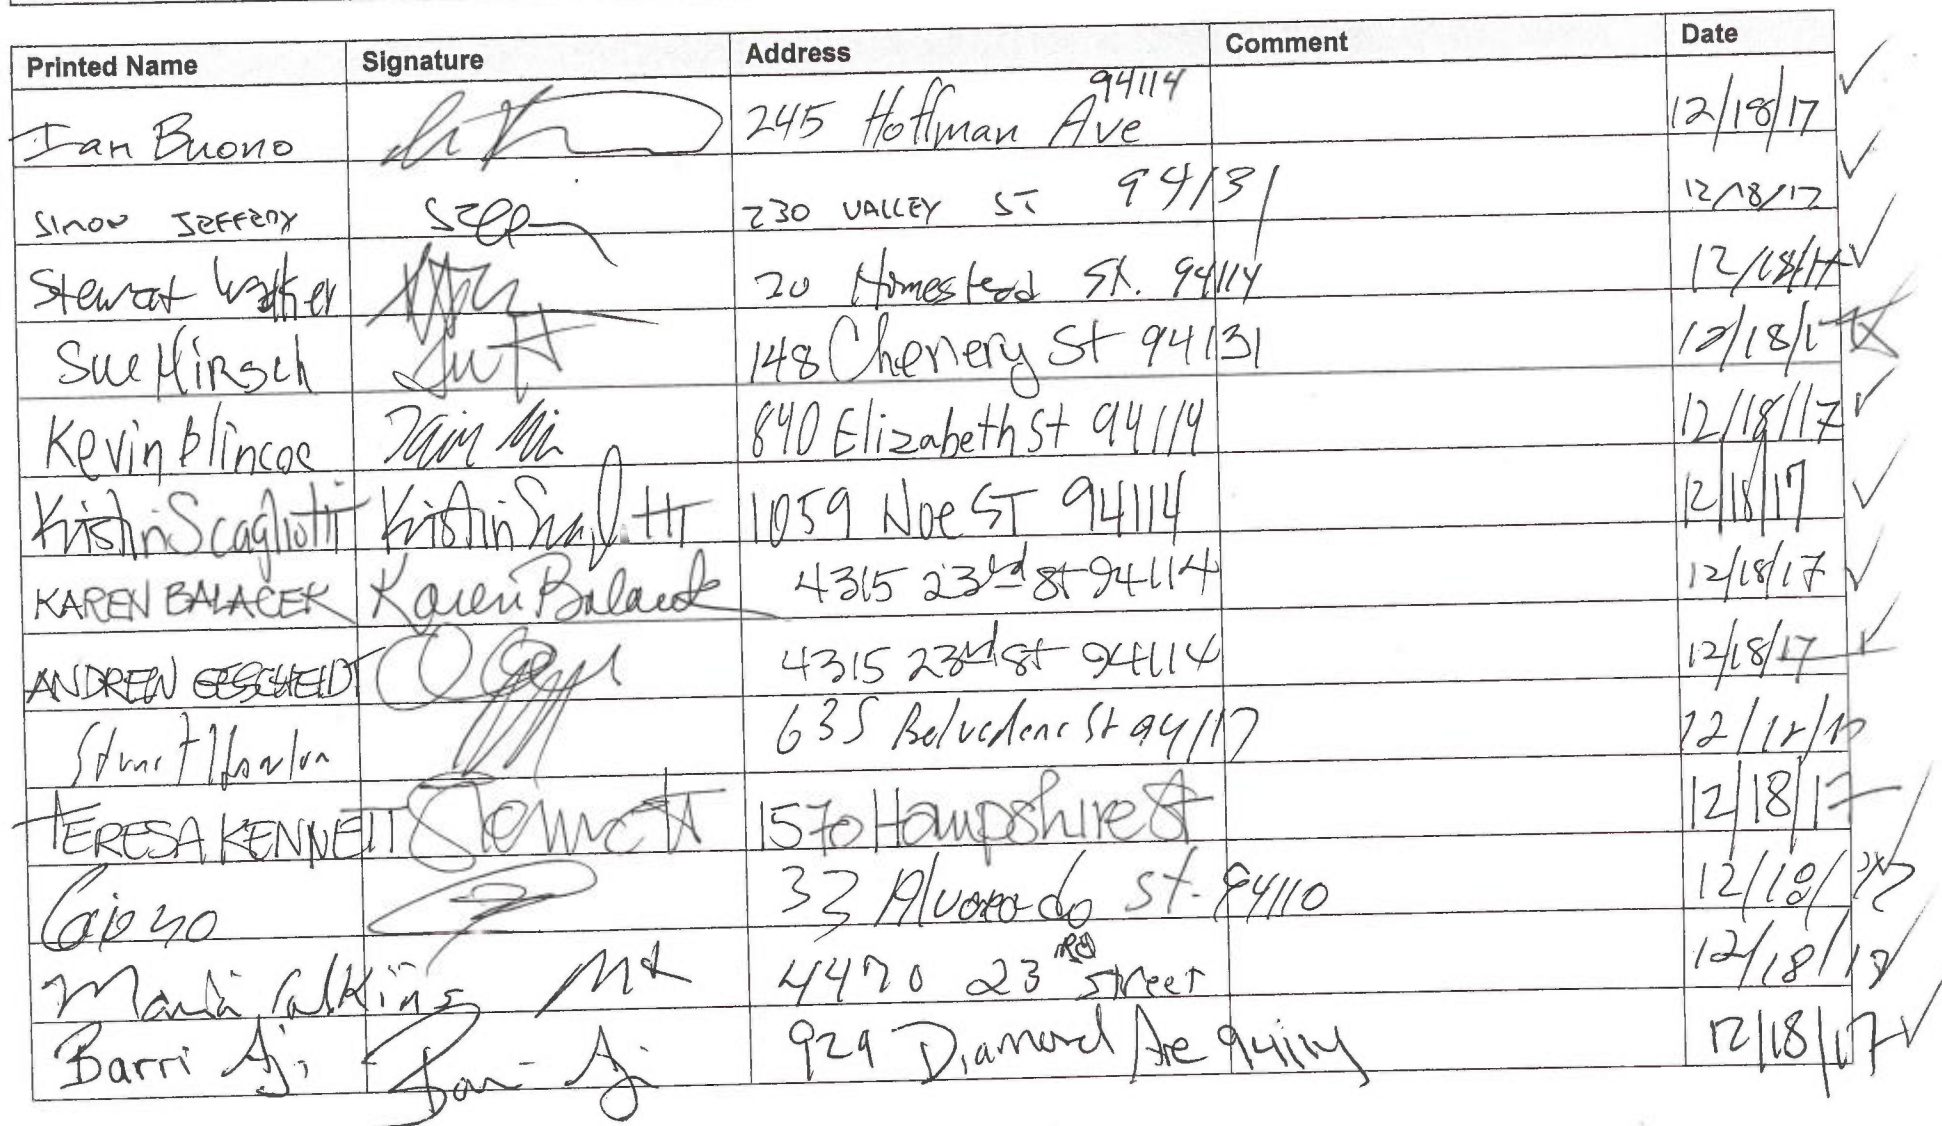 Printed Name Signature Address Comment Date
Ian Buono 245 Hoffman Ave 94114 12/18/17
SIMON JEFFERY 230 VALLEY ST 94131 12/18/17
Stewart Walker 20 Homestead St. 94114 12/18/17
Sue Hirsch 148 Chenery St 94131 12/18/17
Kevin Blincoe 840 Elizabeth St 94114 12/18/17
Kristin Scagliotti Kristin 1059 Noe ST 94114 12/18/17
KAREN BALACEK Karen Balacek 4315 23rd St 94114 12/18/17
ANDREW GESCHEIDT 4315 23rd St 94114 12/18/17
635 Belvedere St 94117 12/18/17
TERESA KENNETT 1570 Hampshire St 12/18/17
33 Alvarado St. 94110 12/18/17
Maria Calkins MK 4470 23 RD Street 12/18/17
Barri 929 Diamond 94114 12/18/17